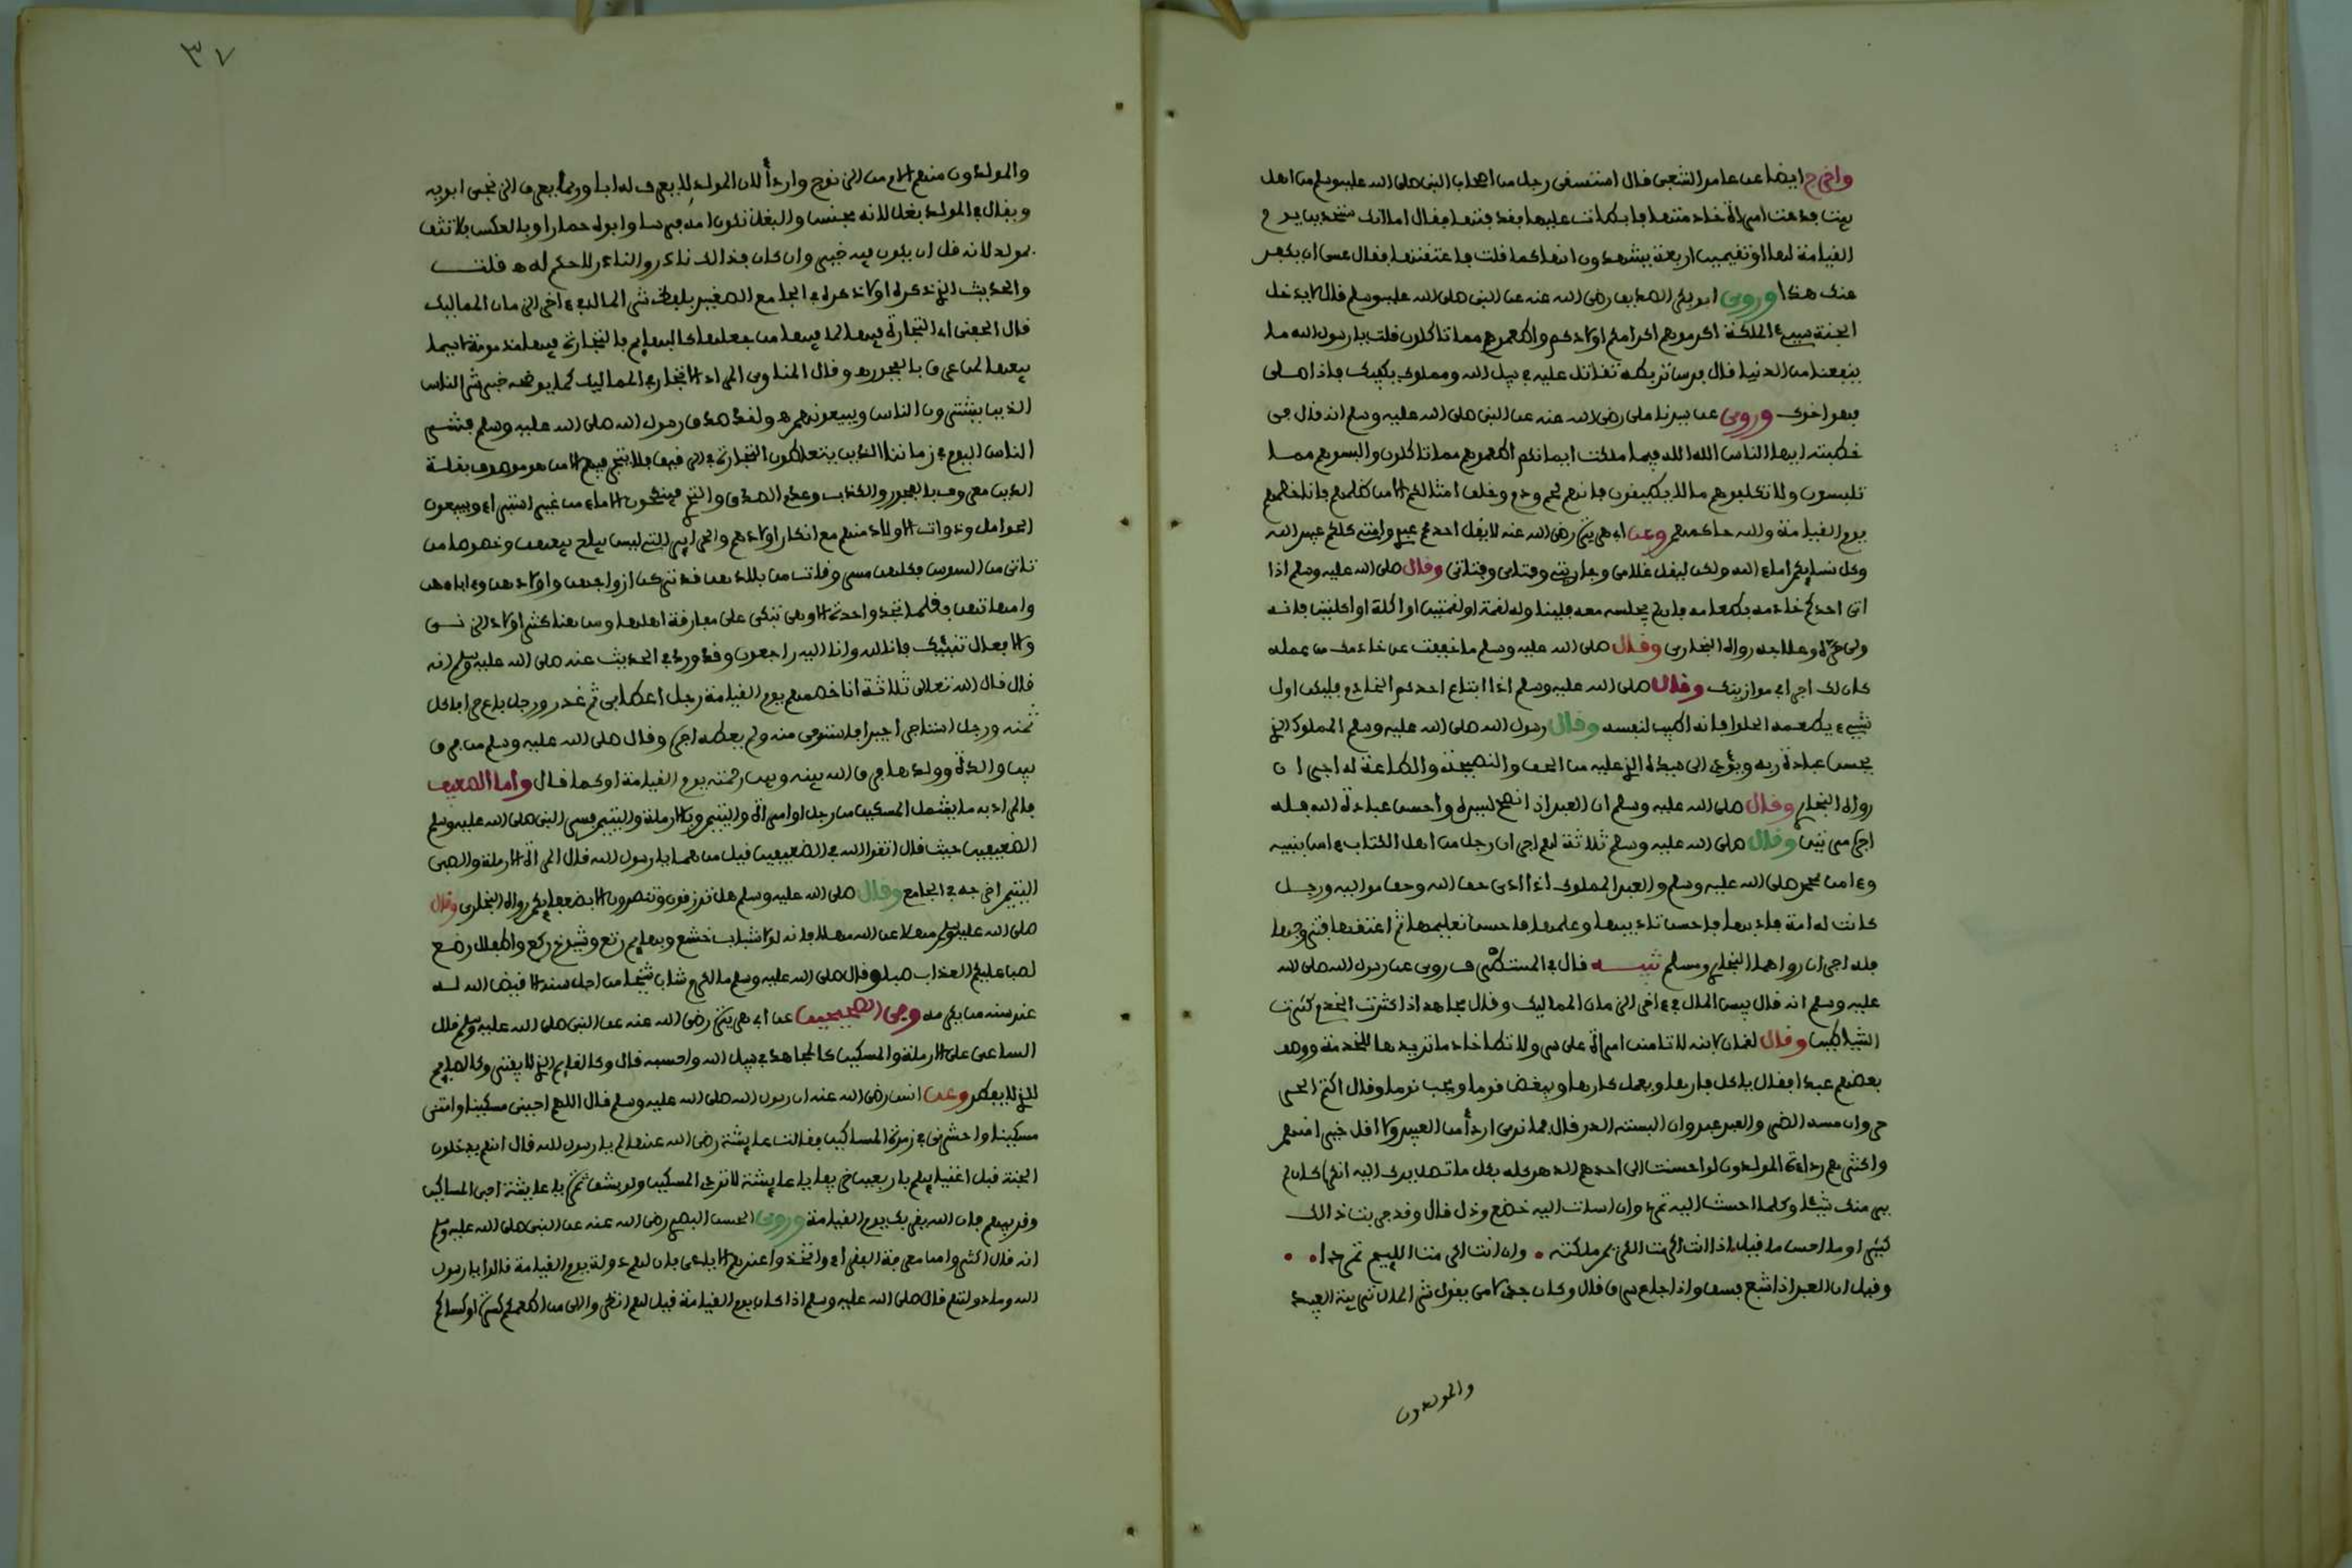 واخرج ايضا عن عامر الشعبي قال استسقى رجل من اصحاب النبي صلى الله عليه وسلم من اهل
بيت فدعت امراة خادمتها فابطات عليها فقذفتها فقال اما انك ستحدين يوم
القيامة لها او تقيمين اربعة يشهدون انها كما قلت فاعتقتها فقال عسى ان يكفر
عنك هذا وروى ابو بكر الصديق رضي الله عنه عن النبي صلى الله عليه وسلم قال لا يدخل
الجنة سيئ الملكة اكرموهم اكرامكم اولادكم واطعموهم مما تاكلون قلت يا رسول الله ما
ينفعنا من الدنيا قال فرس تربطه تقاتل عليه في سبيل الله ومملوك يكفيك فاذا صلى
فهو اخوك وروى عن سيدنا علي رضي الله عنه عن النبي صلى الله عليه وسلم انه قال في
خطبته ايها الناس الله الله فيما ملكت ايمانكم اطعموهم مما تاكلون والبسوهم مما
تلبسون ولا تكلفوهم ما لا يطيقون فانهم لحم ودم وخلق امثالكم الا من ظلمهم فانا خصمهم
يوم القيامة والله حاكمهم وعن ابي هريرة رضي الله عنه لا يقل احدكم عبدي وامتي كلكم عبيد الله
وكل نسايكم اماء الله ولكن ليقل غلامي وجاريتي وفتاي وفتاتي وقال صلى الله عليه وسلم اذا
اتى احدكم خادمه بطعامه فان لم يجلسه معه فليناوله لقمة او لقمتين او اكلة او اكلتين فانه
ولي حره وعلاجه رواه البخاري وقال صلى الله عليه وسلم ما خففت عن خادمك من عمله
كان لك اجرا في موازينك وقال صلى الله عليه وسلم اذا ابتاع احدكم الخادم فليكن اول
شيء يطعمه الحلوا فانه اطيب لنفسه وقال رسول الله صلى الله عليه وسلم المملوك الذي
يحسن عبادة ربه ويؤدي الى سيده الذي عليه من الحق والنصيحة والطاعة له اجران
رواه البخاري وقال صلى الله عليه وسلم ان العبد اذا نصح لسيده واحسن عبادة الله فله
اجره مرتين وقال صلى الله عليه وسلم ثلاثة لهم اجران رجل من اهل الكتاب ءامن بنبيه
وءامن بمحمد صلى الله عليه وسلم والعبد المملوك اذا ادى حق الله وحق مواليه ورجل
كانت له امة فادبها فاحسن تاديبها وعلمها فاحسن تعليمها ثم اعتقها فتزوجها
فله اجران رواهما البخاري ومسلم تنبيه قال في المستطرف روى عن رسول الله صلى الله
عليه وسلم انه قال بيس المال في ءاخر الزمان المماليك وقال مجاهد اذا كثرت الخدم كثرت
الشياطين وقال لقمان لابنه لا تامن امراة على سر ولا تطا خادما تريدها للخدمة ووصف
بعضهم عبدا فقال ياكل فارها ويعمل كارها ويبغض قوما ويحب نوما وقال اكثم الحر
حر وان مسه الضر والعبد عبد وان البسته الدر قال فما نرى اردأ من العبيد ولا اقل خيرا منهم
واكثرهم رداءة المولدون لو احسنت الى احدهم الدهر كله بكل ما تصل يدك اليه انكره كان لم
يرى منك شيئا وكلما احسنت اليه تمرد وان اسات اليه خضع وذل قال وقد جربت ذالك
كثيرا وما احسن ما قيل اذا انت اكرمت الكريم ملكته • وان انت اكرمت اللييم تمردا
وقيل ان العبد اذا شبع فسق واذا جاع سرق قال وكان جدى لامي يقول شر المال تربية العبيد
والمولدون
٣٧
والمولدون منهم الام من الزنوج واردأ لان المولد لا يعرف له ابا وربما يعرف الزنجي ابويه
ويقال في المولد بغل لانه مجنس والبغل تكون امه فرسا وابوه حمارا وبالعكس فلا تثق
بمولد لانه قل ان يكون فيه خير وان كان فذالك نادر والنادر لا حكم له ه قلت
والحديث الذي ذكره اولا ذكره في الجامع الصغير بلفظ شر المال في ءاخر الزمان المماليك
قال الحفني اي التجارة فيها لما فيها من جعلها كالبهايم فالتجارة فيها مذمومة لاسيما
بيعها لمن عرف بالفجور ه وقال المناوي المراد الاتجار في المماليك كما يوضحه خبر شر الناس
الذين يشترون الناس ويبيعونهم ه ولقد صدق رسول الله صلى الله عليه وسلم فشر
الناس اليوم في زماننا الذين يتعاطون التجارة في الرقيق فلا يتجر فيهم الا من هو موصوف بقلة
الدين معروف بالفجور والكذب وعدم الصدق والتنزه فينكحون الاماء من غير استبراء ويبيعون
الحوامل وذوات الاولاد منهم مع انكار اولادهم والحراير اللتي ليس يباح بيعهن ونحوها من
تاتي من السوس فكلهن مسبي وفاتت من بلادهن قد تركن ازواجهن واولادهن وءاباءهن
وامهاتهن فقلما تجد واحدة الا وهي تبكي على مفارقة اهلها وسمعنا كثير اولاد الزنا
والافعال تنبيك فانا لله وانا اليه راجعون وقد ورد في الحديث عنه صلى الله عليه وسلم انه
قال قال الله تعالى ثلاثة انا خصمهم يوم القيامة رجل اعطى بي ثم غدر ورجل باع حرا فاكل
ثمنه ورجل استاجر اجيرا فاستوفى منه ولم يعطه اجره وقال صلى الله عليه وسلم من فرق
بين والدة وولدها فرق الله بينه وبين رحمته يوم القيامة او كما قال واما الضعيف
فالمراد به ما يشمل المسكين من رجل او امراة واليتيم والارملة واليتيم فسمى النبي صلى الله عليه وسلم
الضعيفين حيث قال اتقوا الله في الضعيفين قيل من هما يا رسول الله قال المراة الارملة والصبي
اليتيم اخرجه في الجامع وقال صلى الله عليه وسلم هل ترزقون وتنصرون الا بضعفايكم رواه البخاري وقال
صلى الله عليه وسلم مهلا عن الله مهلا فانه لولا شباب خشع وبهايم رتع وشيوخ ركع واطفال رضع
لصب عليكم العذاب صبا وقال صلى الله عليه وسلم ما اكرم شاب شيخا من اجل سنه الا قيض الله له
عند سنه من يكرمه وفي الصحيحين عن ابي هريرة رضي الله عنه عن النبي صلى الله عليه وسلم قال
الساعي على الارملة والمسكين كالمجاهد في سبيل الله واحسبه قال وكالقايم الذي لا يفتر وكالصايم
الذي لا يفطر وعن انس رضي الله عنه ان رسول الله صلى الله عليه وسلم قال اللهم احيني مسكينا وامتني
مسكينا واحشرني في زمرة المساكين فقالت عايشة رضي الله عنها لم يا رسول الله قال انهم يدخلون
الجنة قبل اغنيايهم باربعين خريفا يا عايشة لا تردي المسكين ولو بشق تمرة يا عايشة احبي المساكين
وقربيهم فان الله يقربك يوم القيامة وروى الحسن البصري رضي الله عنه عن النبي صلى الله عليه وسلم
انه قال اكثروا من معرفة الفقراء واتخذوا عندهم الايادي فان لهم دولة يوم القيامة قالوا يا رسول
الله وما دولتهم قال صلى الله عليه وسلم اذا كان يوم القيامة قيل لهم انظروا الى من اطعمكم كسرة او كساكم